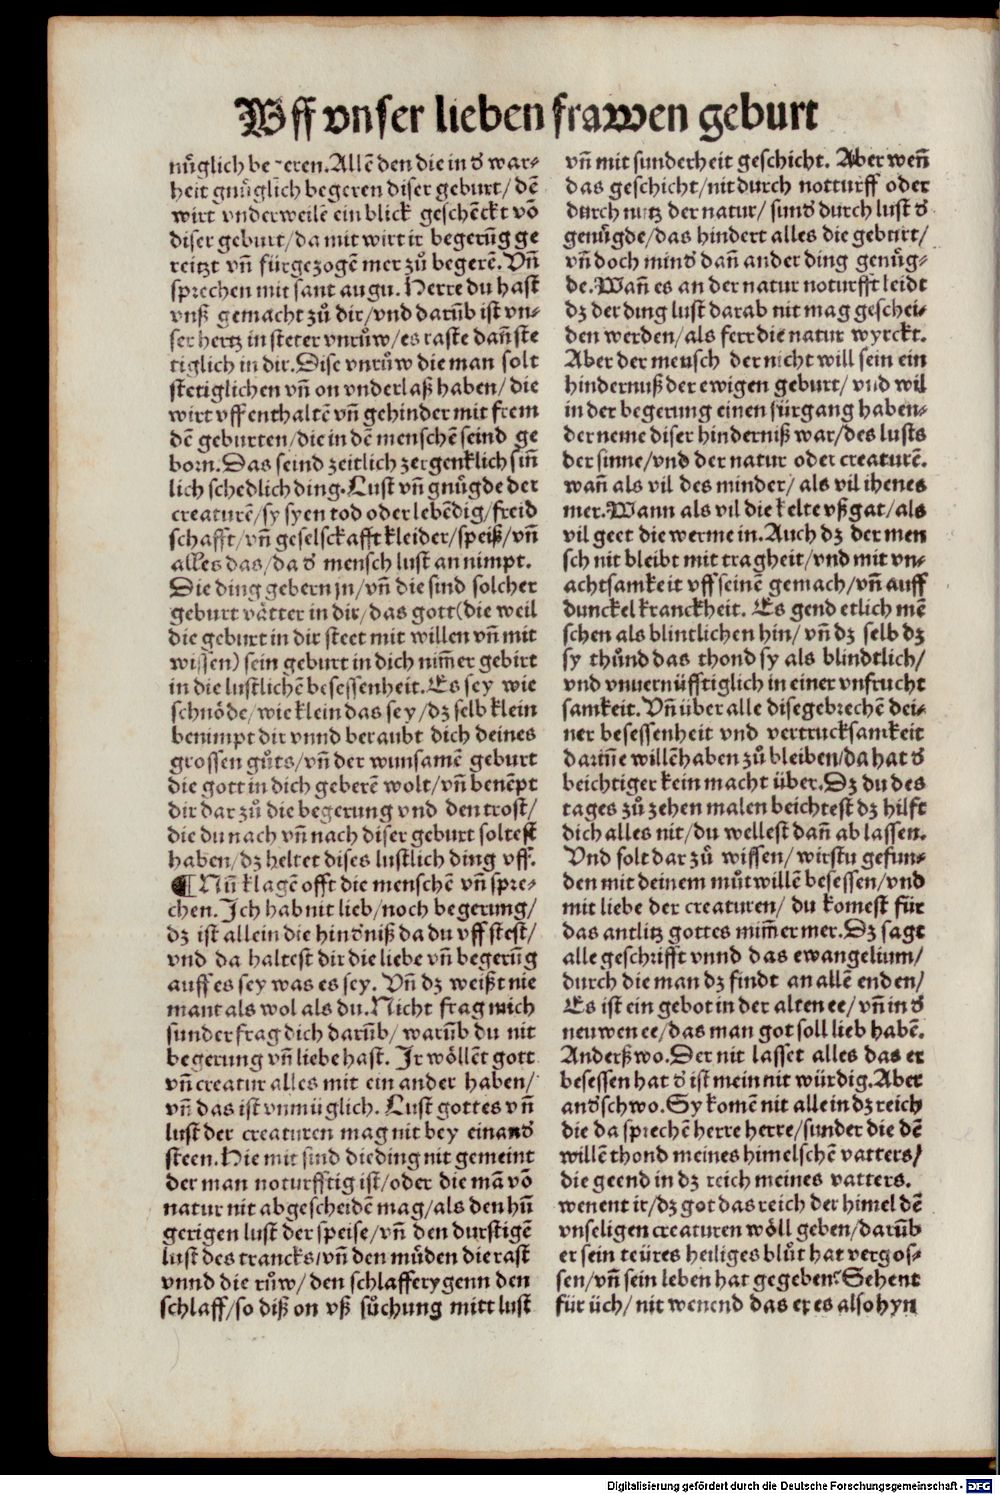 Uff vnser lieben frawen geburt
nu̇glich begeren. Allē den die in d' war-
heit gnüglich begeren diser geburt/ dē
wirt vnderweilē ein blick geschēckt vō
diser geburt/ da mit wirt ir begerūg ge
reitzt vn̄ fürgezogē mer zů begerē. Vn̄
sprechen mit sant augu. Herre du hast
vnß gemacht zů dir/ vnd darūb ist vn-
ser hertz in steter vnrůw/ es raste dan̄ ste
tiglich in dir. Dise vnrůw die man solt
stetiglichen vn̄ on vnderlaß haben/ die
wirt vff enthaltē vn̄ gehinder mit frem
dē geburten/ die in dē menschē seind ge
born. Das seind zeitlich zergenklich sin̄
lich schedlich ding. Lust vn̄ gnůgde der
creaturē/ sy syen tod oder lebēdig/ freid
schafft/ vn̄ geselsckafft kleider/ speiß/ vn̄
alles das/ da d' mensch lust an nimpt.
Die ding gebern jn/ vn̄ die sind solcher
geburt våtter in dir/ das gott (die weil
die geburt in dir steet mit willen vn̄ mit
wissen) sein geburt in dich nim̄er gebirt
in die lustlichē besessenheit. Es sey wie
schnöde/ wie klein das sey/ dz selb klein
benimpt dir vnnd beraubt dich deines
grossen gůts/ vn̄ der wunsamē geburt
die gott in dich geberē wolt/ vn̄ benēpt
dir dar zů die begerung vnd den trost/
die du nach vn̄ nach diser geburt soltest
haben/ dz heltet dises lustlich ding vff.
¶ Nūn klagē offt die menschē vn̄ spre-
chen. Ich hab nit lieb/ noch begerung/
dz ist allein die hind'niß da du vff stest/
vnd da haltest dir die liebe vn̄ begerūg
auff es sey was es sey. Vn̄ dz weißt nie
mant als wol als du. Nicht frag mich
sunder frag dich darūb/ warūb du nit
begerung vn̄ liebe hast. Ir wöllēt gott
vn̄ creatur alles mit ein ander haben/
vn̄ das ist vnmüglich. Lust gottes vn̄
lust der creaturen mag nit bey einand'
steen. Hie mit sind die ding nit gemeint
der man noturfftig ist/ oder die mā vō
natur nit abgescheidē mag/ als den hū
gerigen lust der speise/ vn̄ den durstigē
lust des trancks/ vn̄ den müden die rast
vnnd die růw/ den schlafferygenn den
schlaff/ so diß on vß sůchung mitt lust
vn̄ mit sunderheit geschicht. Aber wen̄
das geschicht/ nit durch notturff oder
durch nutz der natur/ sund' durch lust d'
genůgde/ das hindert alles die geburt/
vn̄ doch mind' dan̄ ander ding genůg-
de. Wan̄ es an der natur noturfft leidt
dz der ding lust darab nit mag geschei-
den werden/ als ferr die natur wyrckt.
Aber der mensch der nicht will sein ein
hindernuß der ewigen geburt/ vnd wil
in der begerung einen fürgang haben-
der neme diser hinderniß war/ des lusts
der sinne/ vnd der natur oder creaturē.
wan̄ als vil des minder/ als vil ihenes
mer. Wann als vil die kelte vßgat/ als
vil geet die werme in. Auch dz der men
sch nit bleibt mit tragheit/ vnd mit vn-
achtsamkeit vff seinē gemach/ vn̄ auff
dunckel kranckheit. Es gend etlich mē
schen als blintlichen hin/ vn̄ dz selb dz
sy thůnd das thond sy als blindtlich/
vnd vnuernüfftiglich in einer vnfrucht
samkeit. Vn̄ über alle dise gebrechē dei-
ner besessenheit vnd vertrucksamkeit
darin̄e willē haben zů bleiben/ da hat d'
beichtiger kein macht über. Dz du des
tages zů zehen malen beichtest dz hilft
dich alles nit/ du wellest dan̄ ab lassen.
Vnd solt dar zů wissen/ wirstu gefun-
den mit deinem můtwillē besessen/ vnd
mit liebe der creaturen/ du komest für
das antlitz gottes nim̄er mer. Dz sagt
alle geschrifft vnnd das ewangelium/
durch die man dz findt an allē enden/
Es ist ein gebot in der alten ee/ vn̄ in d'
neuwen ee/ das man got soll lieb habē.
Anderß wo. Der nit lasset alles das er
besessen hat d' ist mein nit würdig. Aber
and'schwo. Sy komē nit allein dz reich
die da sprechē herre herre/ sunder die dē
willē thond meines himelschē vatters/
die geend in dz reich meines vatters.
wenent ir/ dz got das reich der himel dē
vnseligen creaturen wöll geben/ darūb
er sein teüres heiliges blůt hat vergos-
sen/ vn̄ sein leben hat gegeben? Sehent
für üch/ nit wenend das er es also hyn
Digitalisierung gefördert durch die Deutsche Forschungsgemeinschaft - DFG